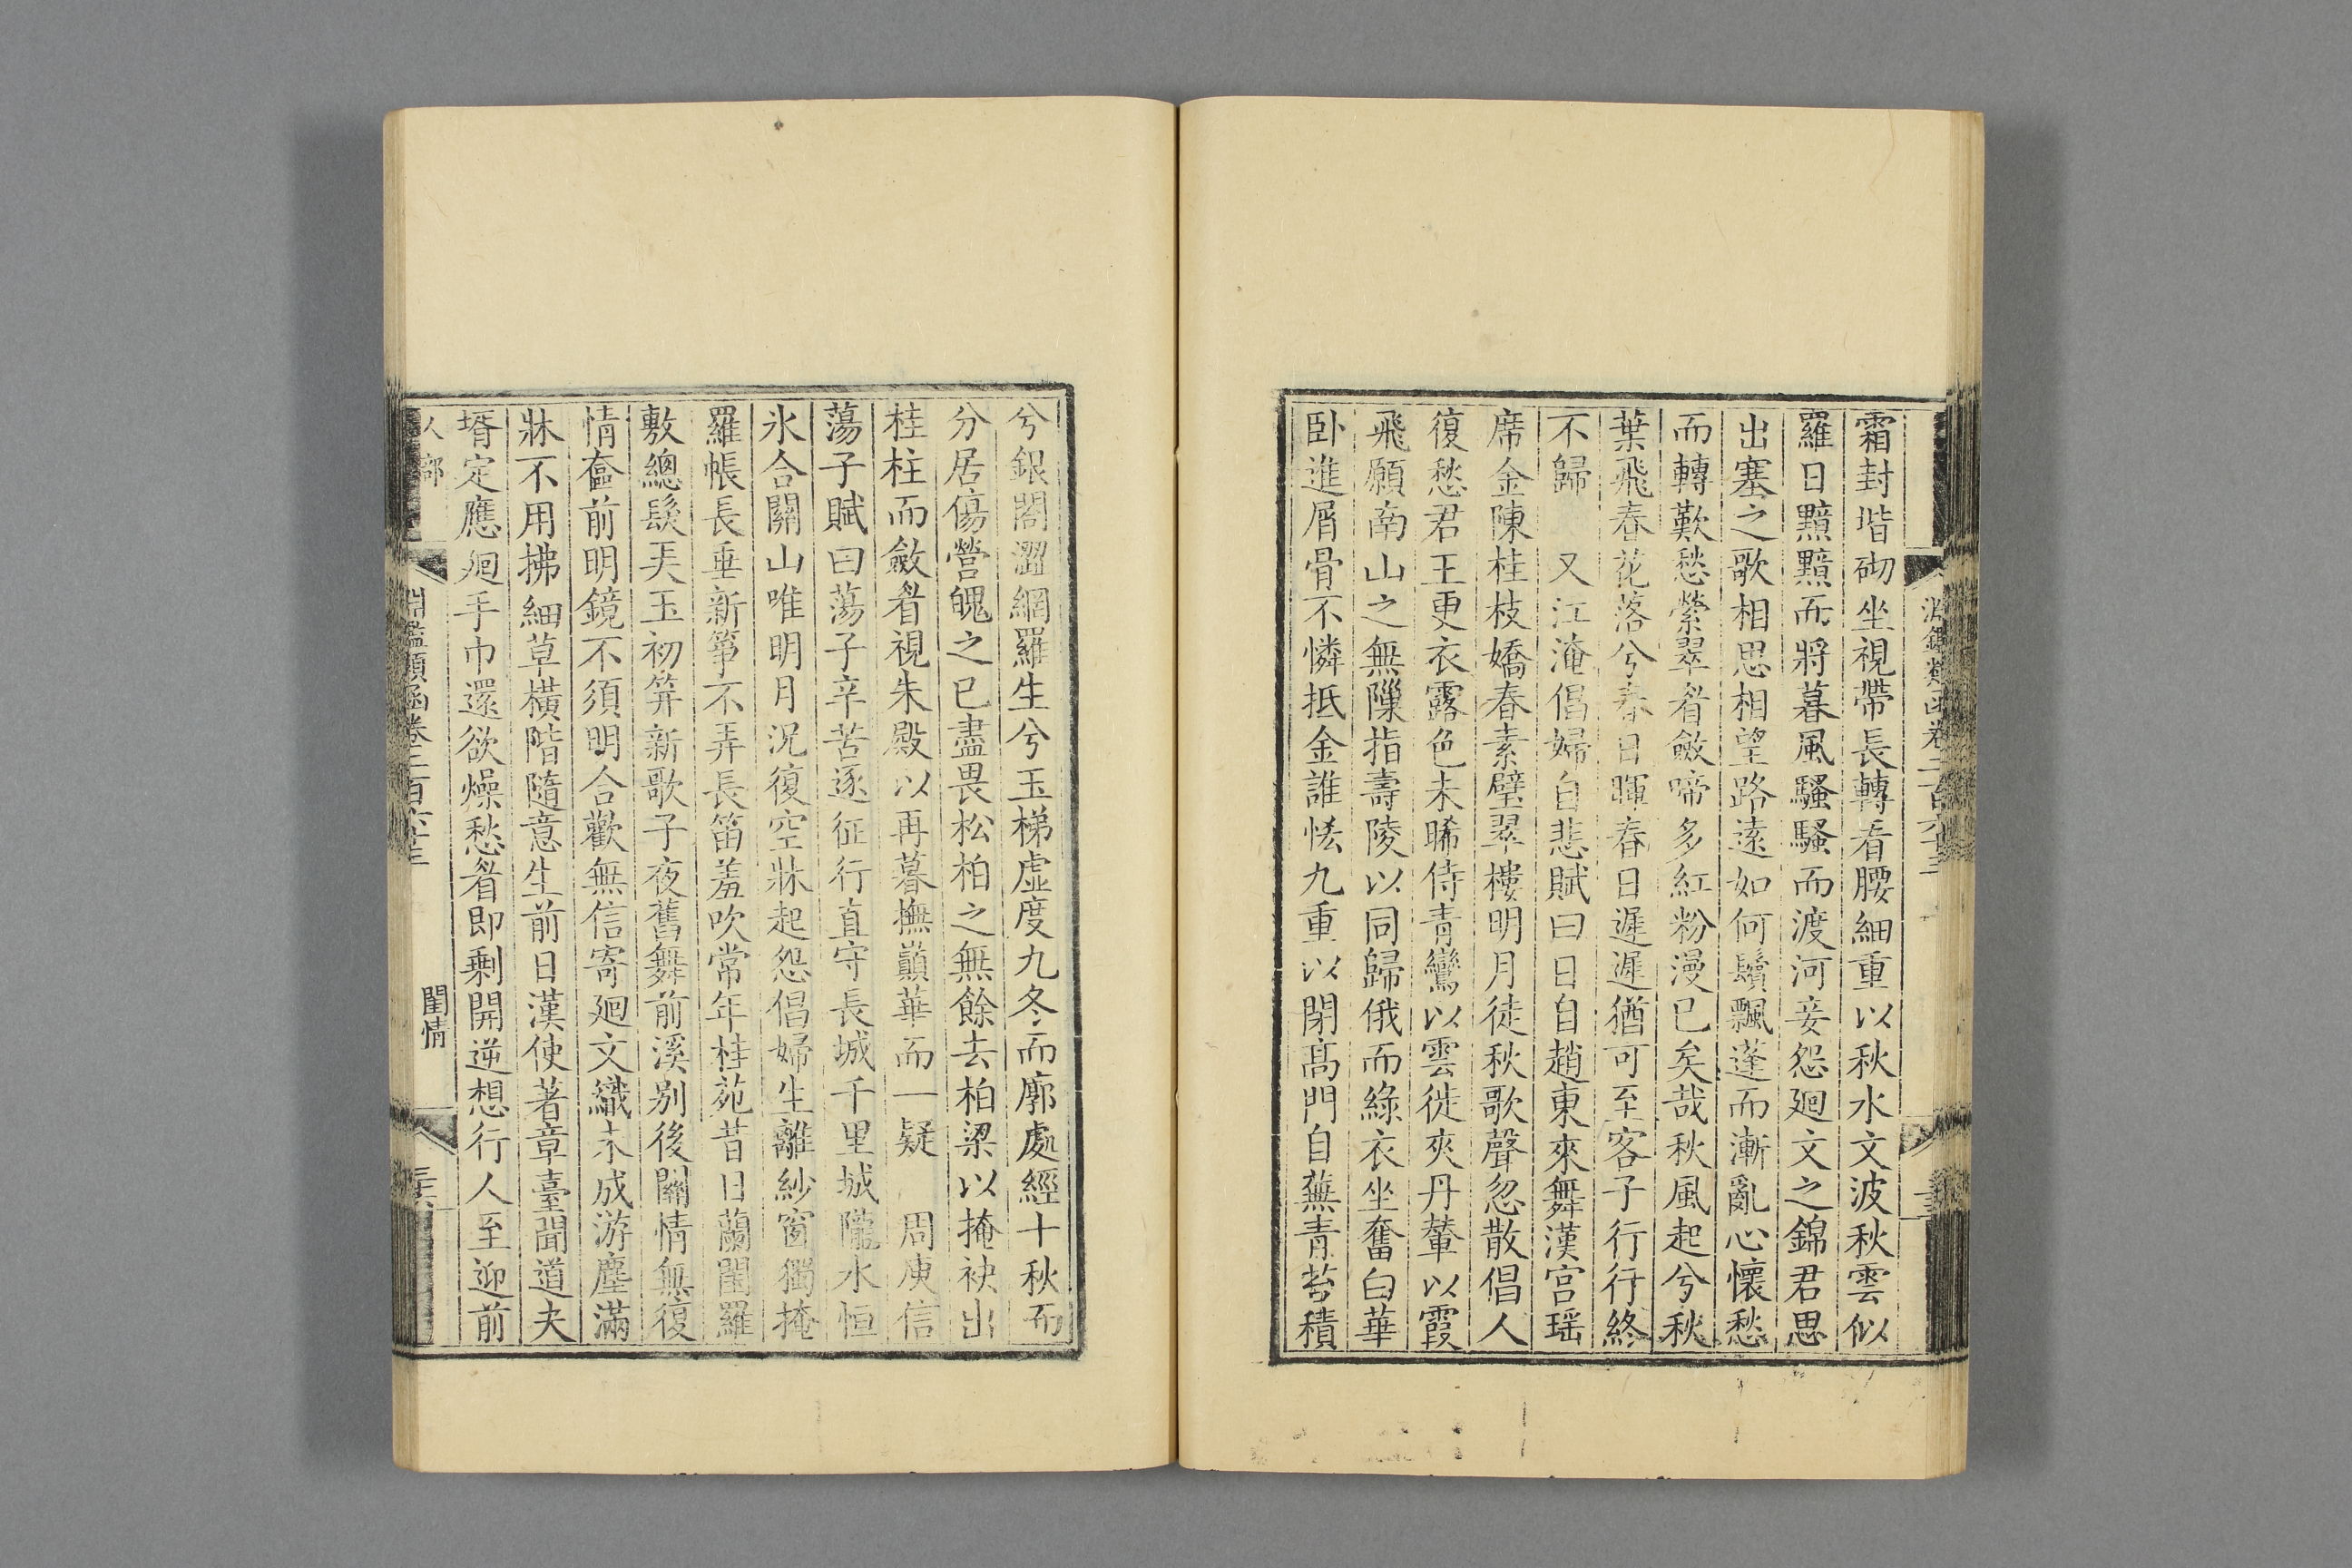 霜封堦砌坐視帶長轉看腰細重以秋水文波秋雲似
羅日黯黯而將暮風騷騷而渡河妾怨廻文之錦君思
出塞之歌相思相望路遠如何鬢飄蓬而漸亂心懷愁
而轉歎愁縈翠眉斂啼多紅粉漫已矣哉秋風起兮秋
葉飛春花落兮春日暉春日遲遲猶可至客子行行終
不歸　又江淹倡婦自悲賦曰日自趙東來舞漢宫瑶
席金陳桂枝嬌春素璧翠樓明月徒秋歌聲忽散倡人
復愁君王更衣露色未晞侍青鸞以雲徙夾丹輦以霞
飛願南山之無隟指壽陵以同歸俄而綠衣坐奮白華
卧進屑骨不憐抵金誰恡九重以閉髙門自蕪青苔積
兮銀閣澀網羅生兮玉梯虛度九冬而廓處經十秋而
分居傷營魄之已盡畏松柏之無餘去柏梁以掩袂出
桂柱而斂眉視朱殿以再暮撫巓華而一疑　周庾信
蕩子賦曰蕩子辛苦逐征行直守長城千里城隴水恒
氷合關山唯明月況復空牀起怨倡婦生離紗窗獨掩
羅帳長垂新箏不弄長笛羞吹常年桂苑昔日蘭閨羅
敷總髪弄玉初笄新歌子夜舊舞前溪别後關情無復
情奩前明鏡不須明合歡無信寄廻文織未成游塵滿
牀不用拂細草横階隨意生前日漢使著章臺聞道夫
壻定應廻手巾還欲燥愁眉即剩開逆想行人至迎前
閨情